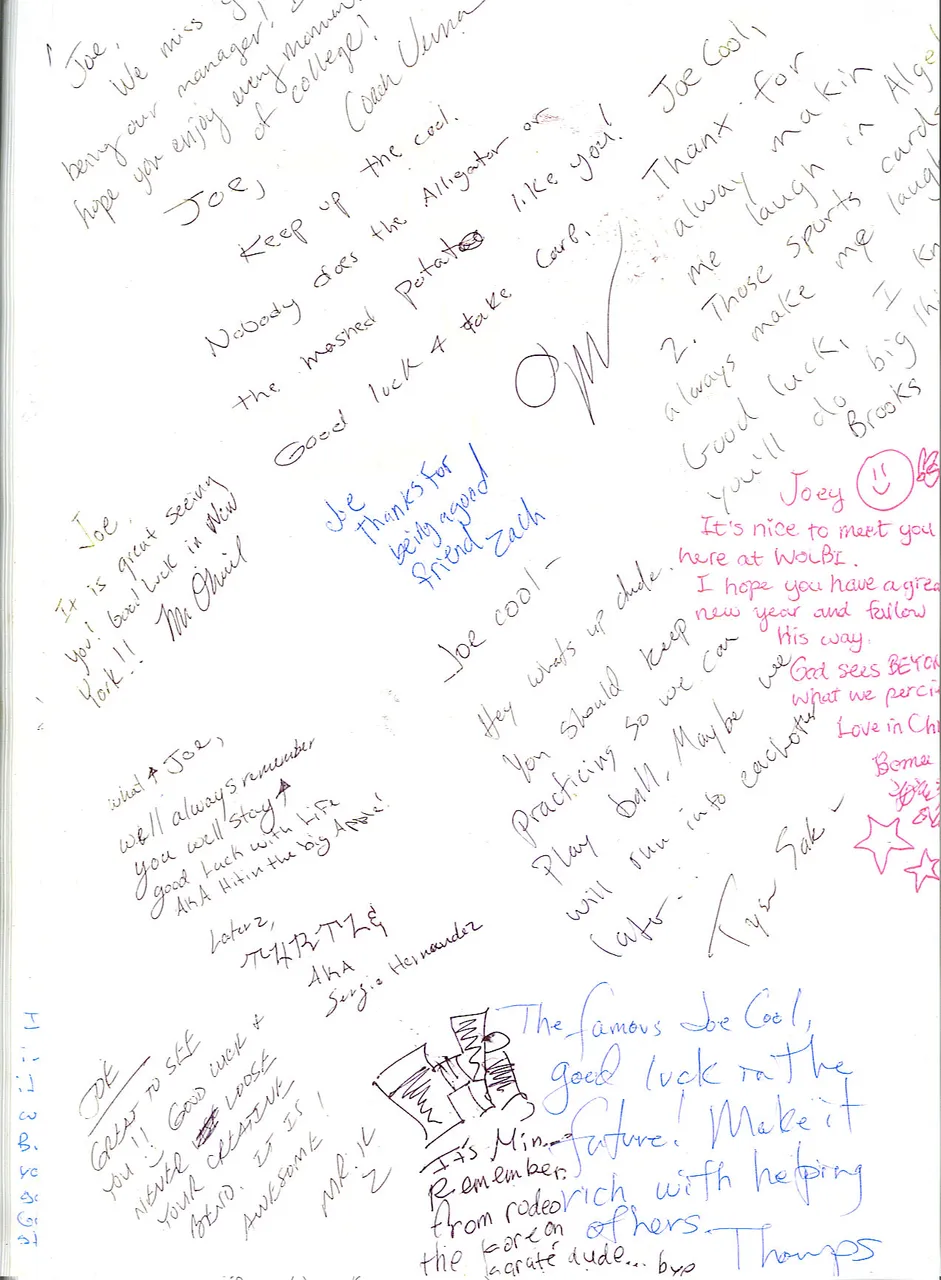 Joe,
We miss
being our manager!
hope you enjoy every moment
of college!
Coach
Joe,
Keep up the cool.
Nobody does the Alligator or
the mashed potato like you!
Good luck & take care,
Joe Cool,
Thanx for
always makin
me laugh in Alge
2. Those sports cards
always make me laugh
Good luck, I kn
you'll do big thi
Brooks
Joe,
It is great seeing
you! Good luck in New
York!!
Joe
Thanks for
being a good
friend Zach
Joey
It's nice to meet you
here at WOLBI.
I hope you have a grea
new year and follow
His way.
God sees BEYON
what we perci
Love in Chr
Joe cool -
Hey whats up dude.
You should keep
practicing so we can
Play ball. Maybe we
will run into eachother
later.
what ↑ Joe,
well always remember
you well stay ↑
good Luck with Life
AKA Hit in the big Apple!
Laterz,
AKA
Sergio Hernandez
JOE
GREAT TO SEE
YOU!! GOOD LUCK &
NEVER LOOSE
YOUR CREATIVE
BEND. IT IS
AWESOME!
MR.
The famous Joe Cool,
good luck in the
future! Make it
rich with helping
others.
Thomps
It's Min
Remember.
from rodeo
the Korean
karate dude... bye